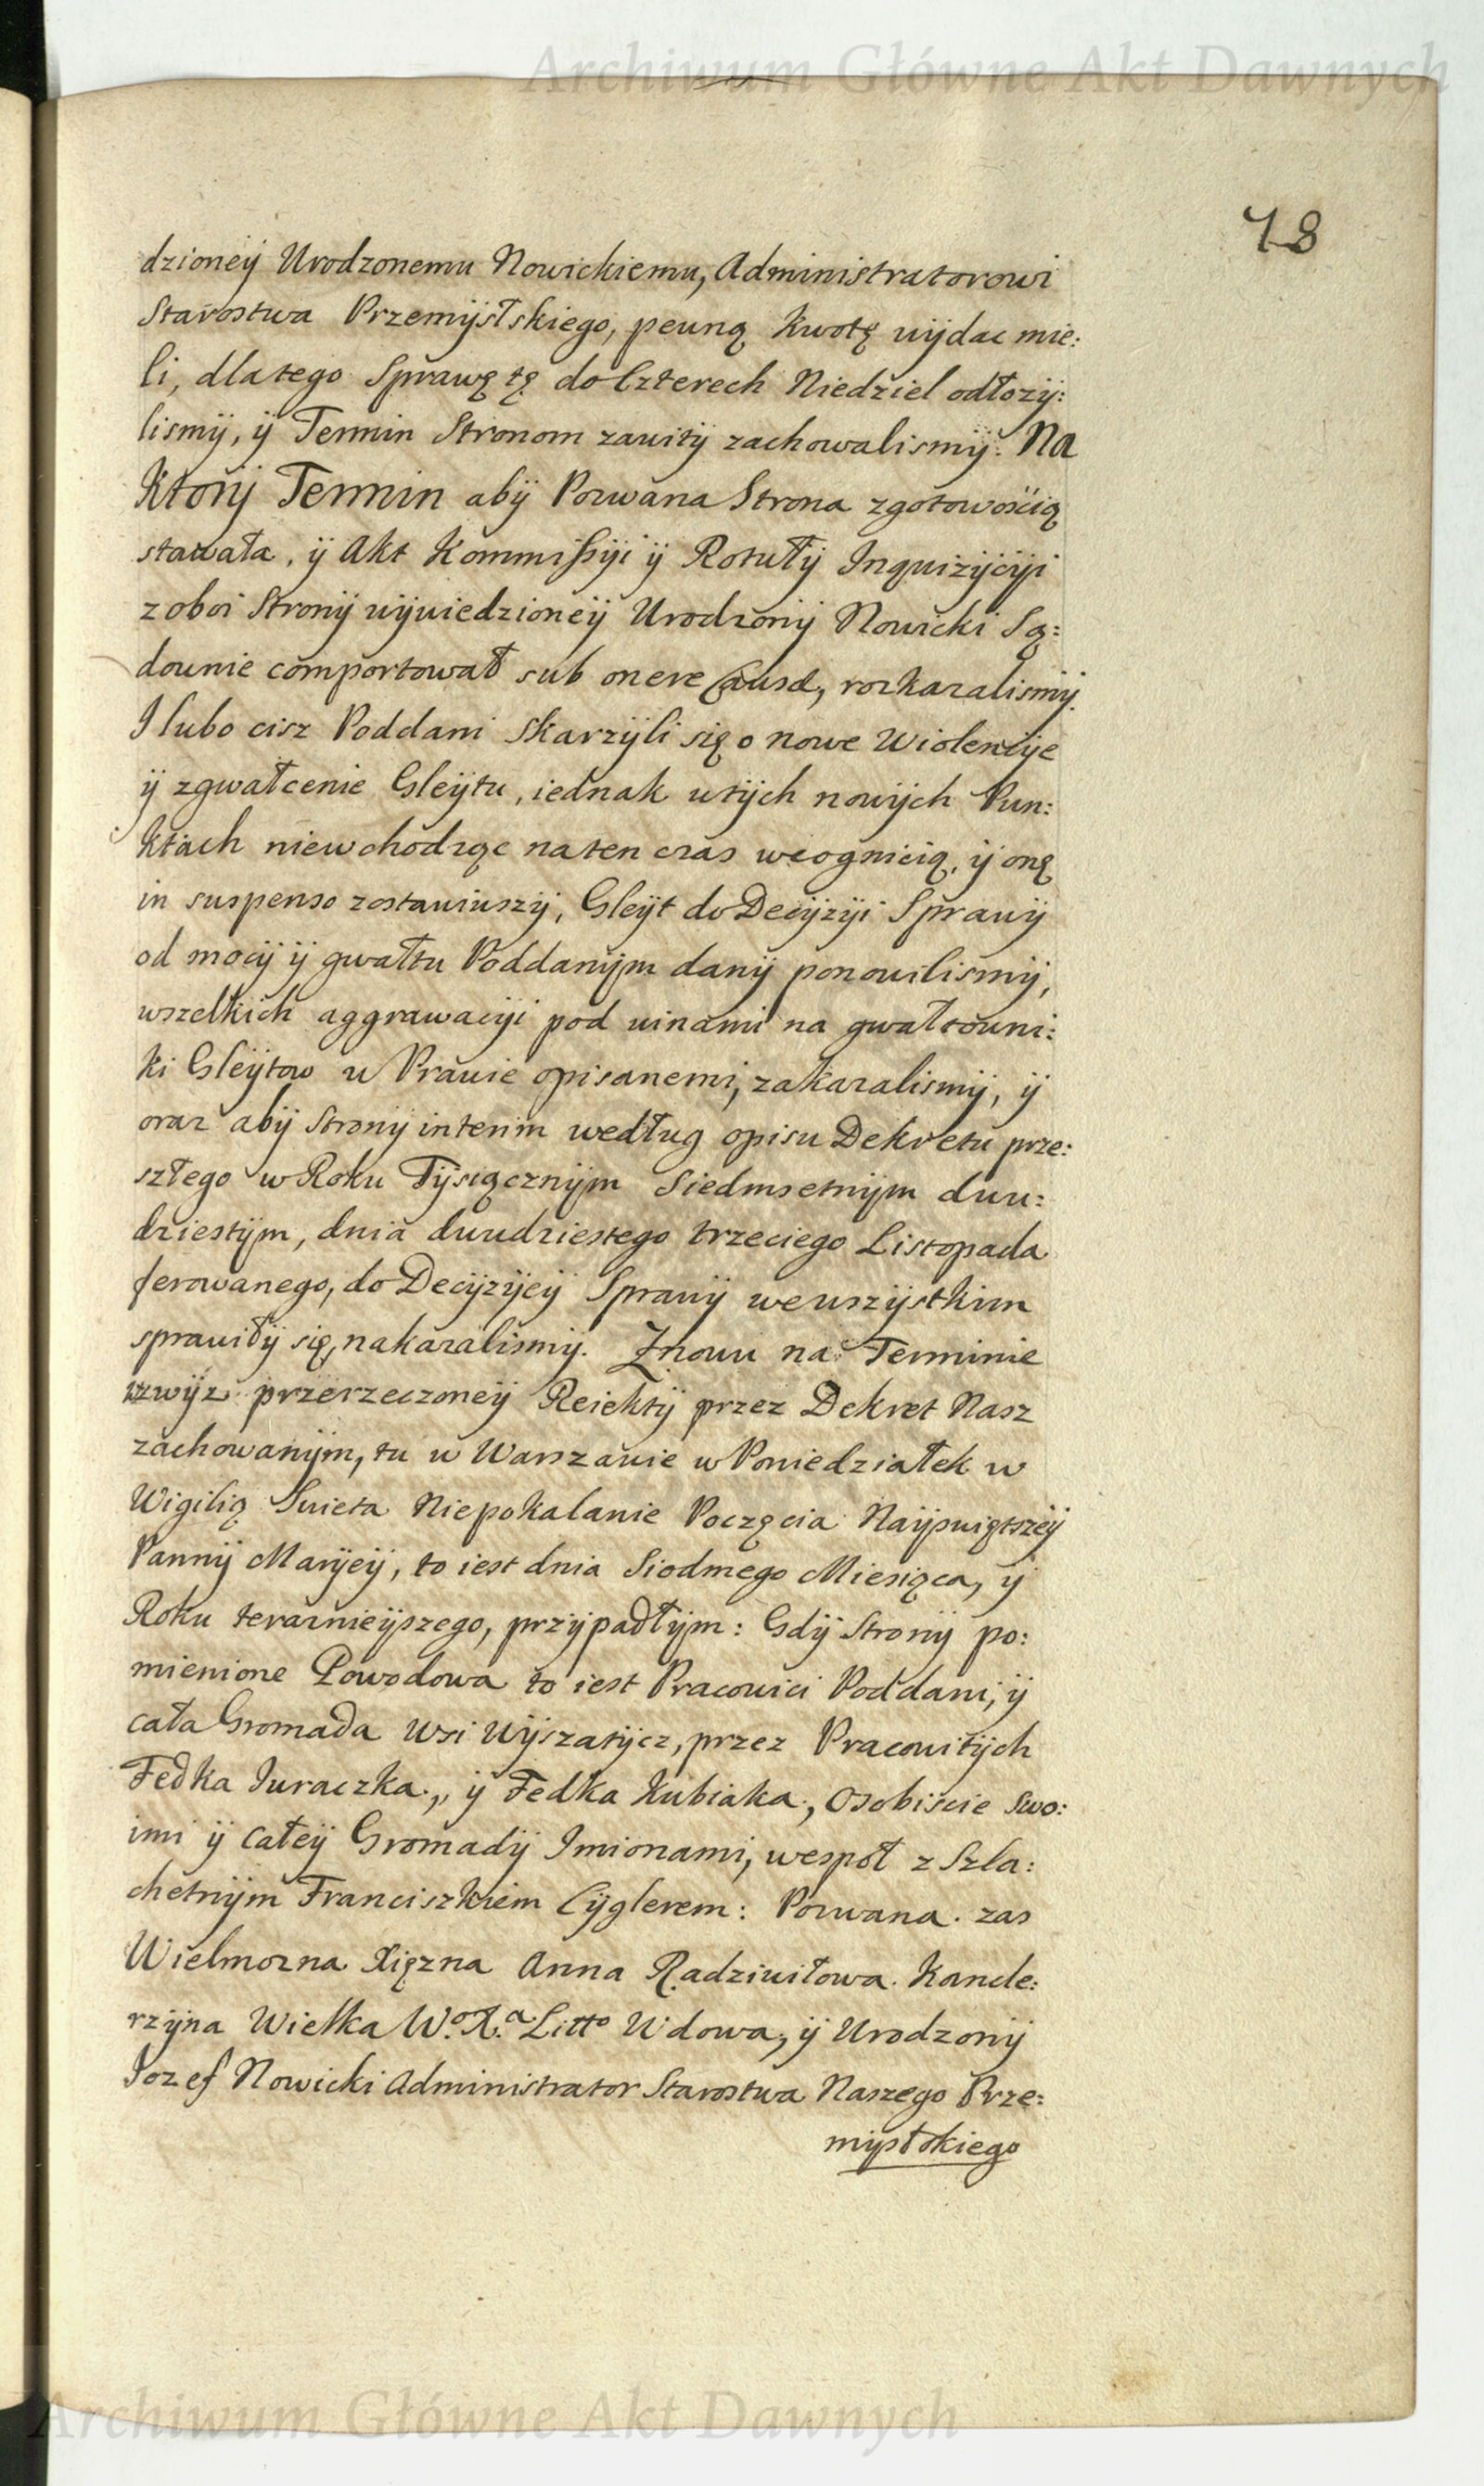 Archiwum Główne Akt Dawnych
78
dzioneÿ Urodzonemu Nowickiemu, Administratorowi
Starostwa Przemÿsłskiego, peuną kwotę uÿdac mie:
li, dlatego Sprawę tę do Czterech Niedziel odłozÿ:
lismÿ, ÿ Termin Stronom zauitÿ zachowalismÿ. Na
Ktorÿ Termin abÿ Pozwana Strona zgotowością
stawała, ÿ Akt Kommissÿi ÿ Rotułÿ Inquizÿcÿi
z oboi Stronÿ uÿuiedzioneÿ Urodzonÿ Nowicki Są:
dounie comportował sub onere Causæ, rozkazalismÿ.
I lubo cisz Poddani skarzÿli się o nowe Wiolencÿe
ÿ zgwałcenie Gleÿtu, iednak utÿch nowÿch Pun:
ktach niewchodząc naten czas wcognicią, ÿ onę
in suspenso zostauiuszÿ, Gleÿt do Decÿzÿi Sprauÿ
od mocÿ ÿ gwałtu Poddanÿm danÿ ponouilismÿ,
wszelkich aggrawacÿi pod uinami na gwałtouni:
ki Gleÿtow u Prauie opisanemi, zakazalismÿ, ÿ
oraz abÿ Stronÿ interim według opisu Dekretu prze:
szłego w Roku Tÿsiącznÿm Siedmsetnÿm duu:
dziestÿm, dnia duudziestego trzeciego Listopada
ferowanego, do Decÿzÿeÿ Sprauÿ weuszÿstkim
sprauiłÿ się, nakazalismÿ. Znouu na Terminie
wzwÿz przerzeczoneÿ Reiektÿ przez Dekret Nasz
zachowanÿm, tu u Warszauie w Poniedziałek w
Wigilią Suieta Niepokalanie Poczęcia Naÿsuiętszeÿ
Pannÿ Marÿeÿ, to iest dnia Siodmego Miesiąca, ÿ
Roku teraznieÿszego, przÿpadłÿm: Gdÿ Stronÿ po:
mienione Powodowa to iest Pracouici Poddani, ÿ
cała Gromada Wsi Wÿszatÿcz, przez Pracouitÿch
Fedka Iuraczka, ÿ Fedka Kubiaka, Osobiscie Swo:
imi ÿ całeÿ Gromadÿ Imionami, wespoł z Szla:
chetnÿm Franciszkiem Cÿglerem: Pozwana zas
Wielmozna Xięzna Anna Radziuiłowa Kancle:
rzÿna Wielka W.º X.ª Littº Wdowa, ÿ Urodzonÿ
Iozef Nowicki Administrator Starostwa Naszego Prze:
mÿsłskiego
Archiwum Główne Akt Dawnych